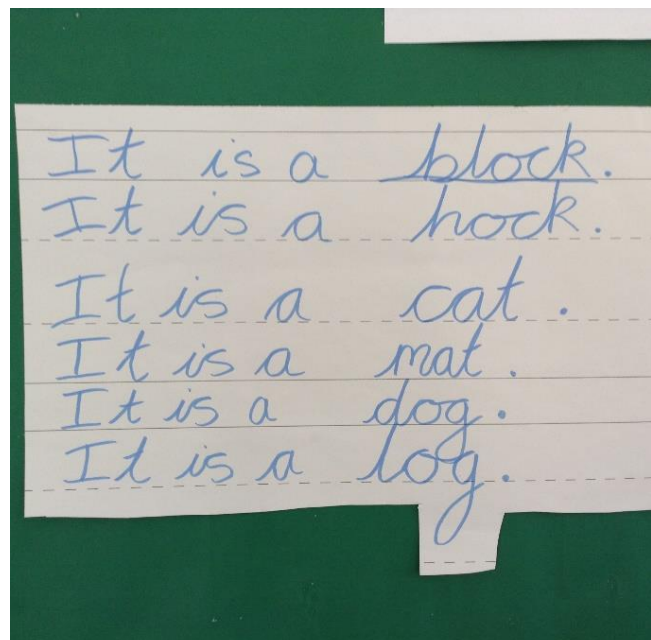 It is a block.
It is a hock.
It is a cat.
It is a mat.
It is a dog.
It is a log.